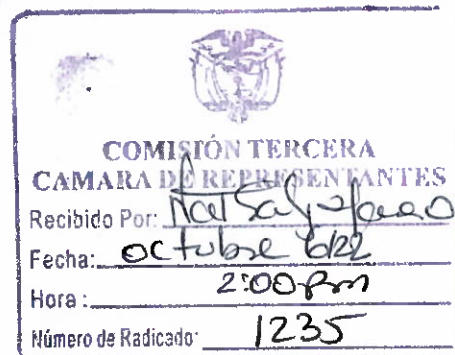 COMISIÓN TERCERA
CAMARA DE REPRESENTANTES
Recibido Por:
Fecha: Octubre 6/22
Hora: 2:00 pm
Número de Radicado: 1235